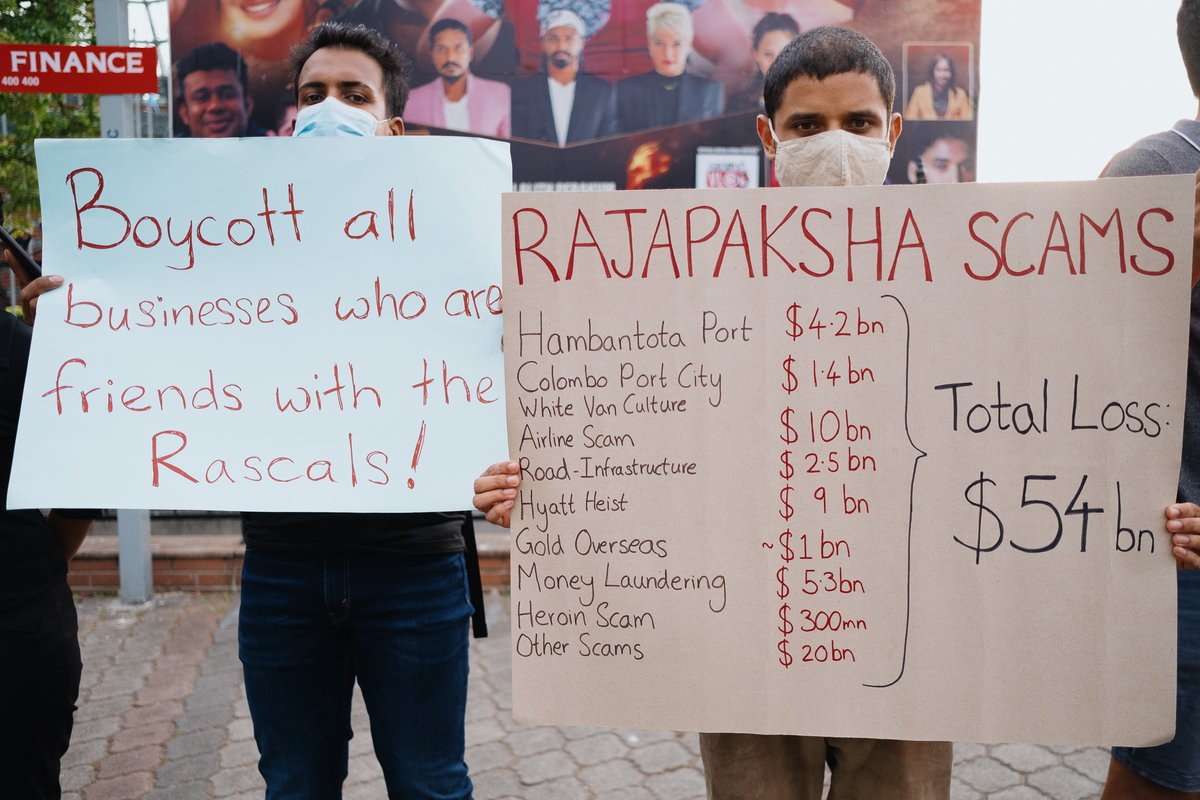 FINANCE
400 400
Boycott all
businesses who are
friends with the
Rascals!
RAJAPAKSHA SCAMS
Hambantota Port $4.2 bn
Colombo Port City $1.4 bn
White Van Culture
Airline Scam $10 bn
Road-Infrastructure $2.5 bn
Hyatt Heist $9 bn
Gold Overseas ~$1 bn
Money Laundering $5.3bn
Heroin Scam $300mn
Other Scams $20bn
Total Loss:
$54 bn